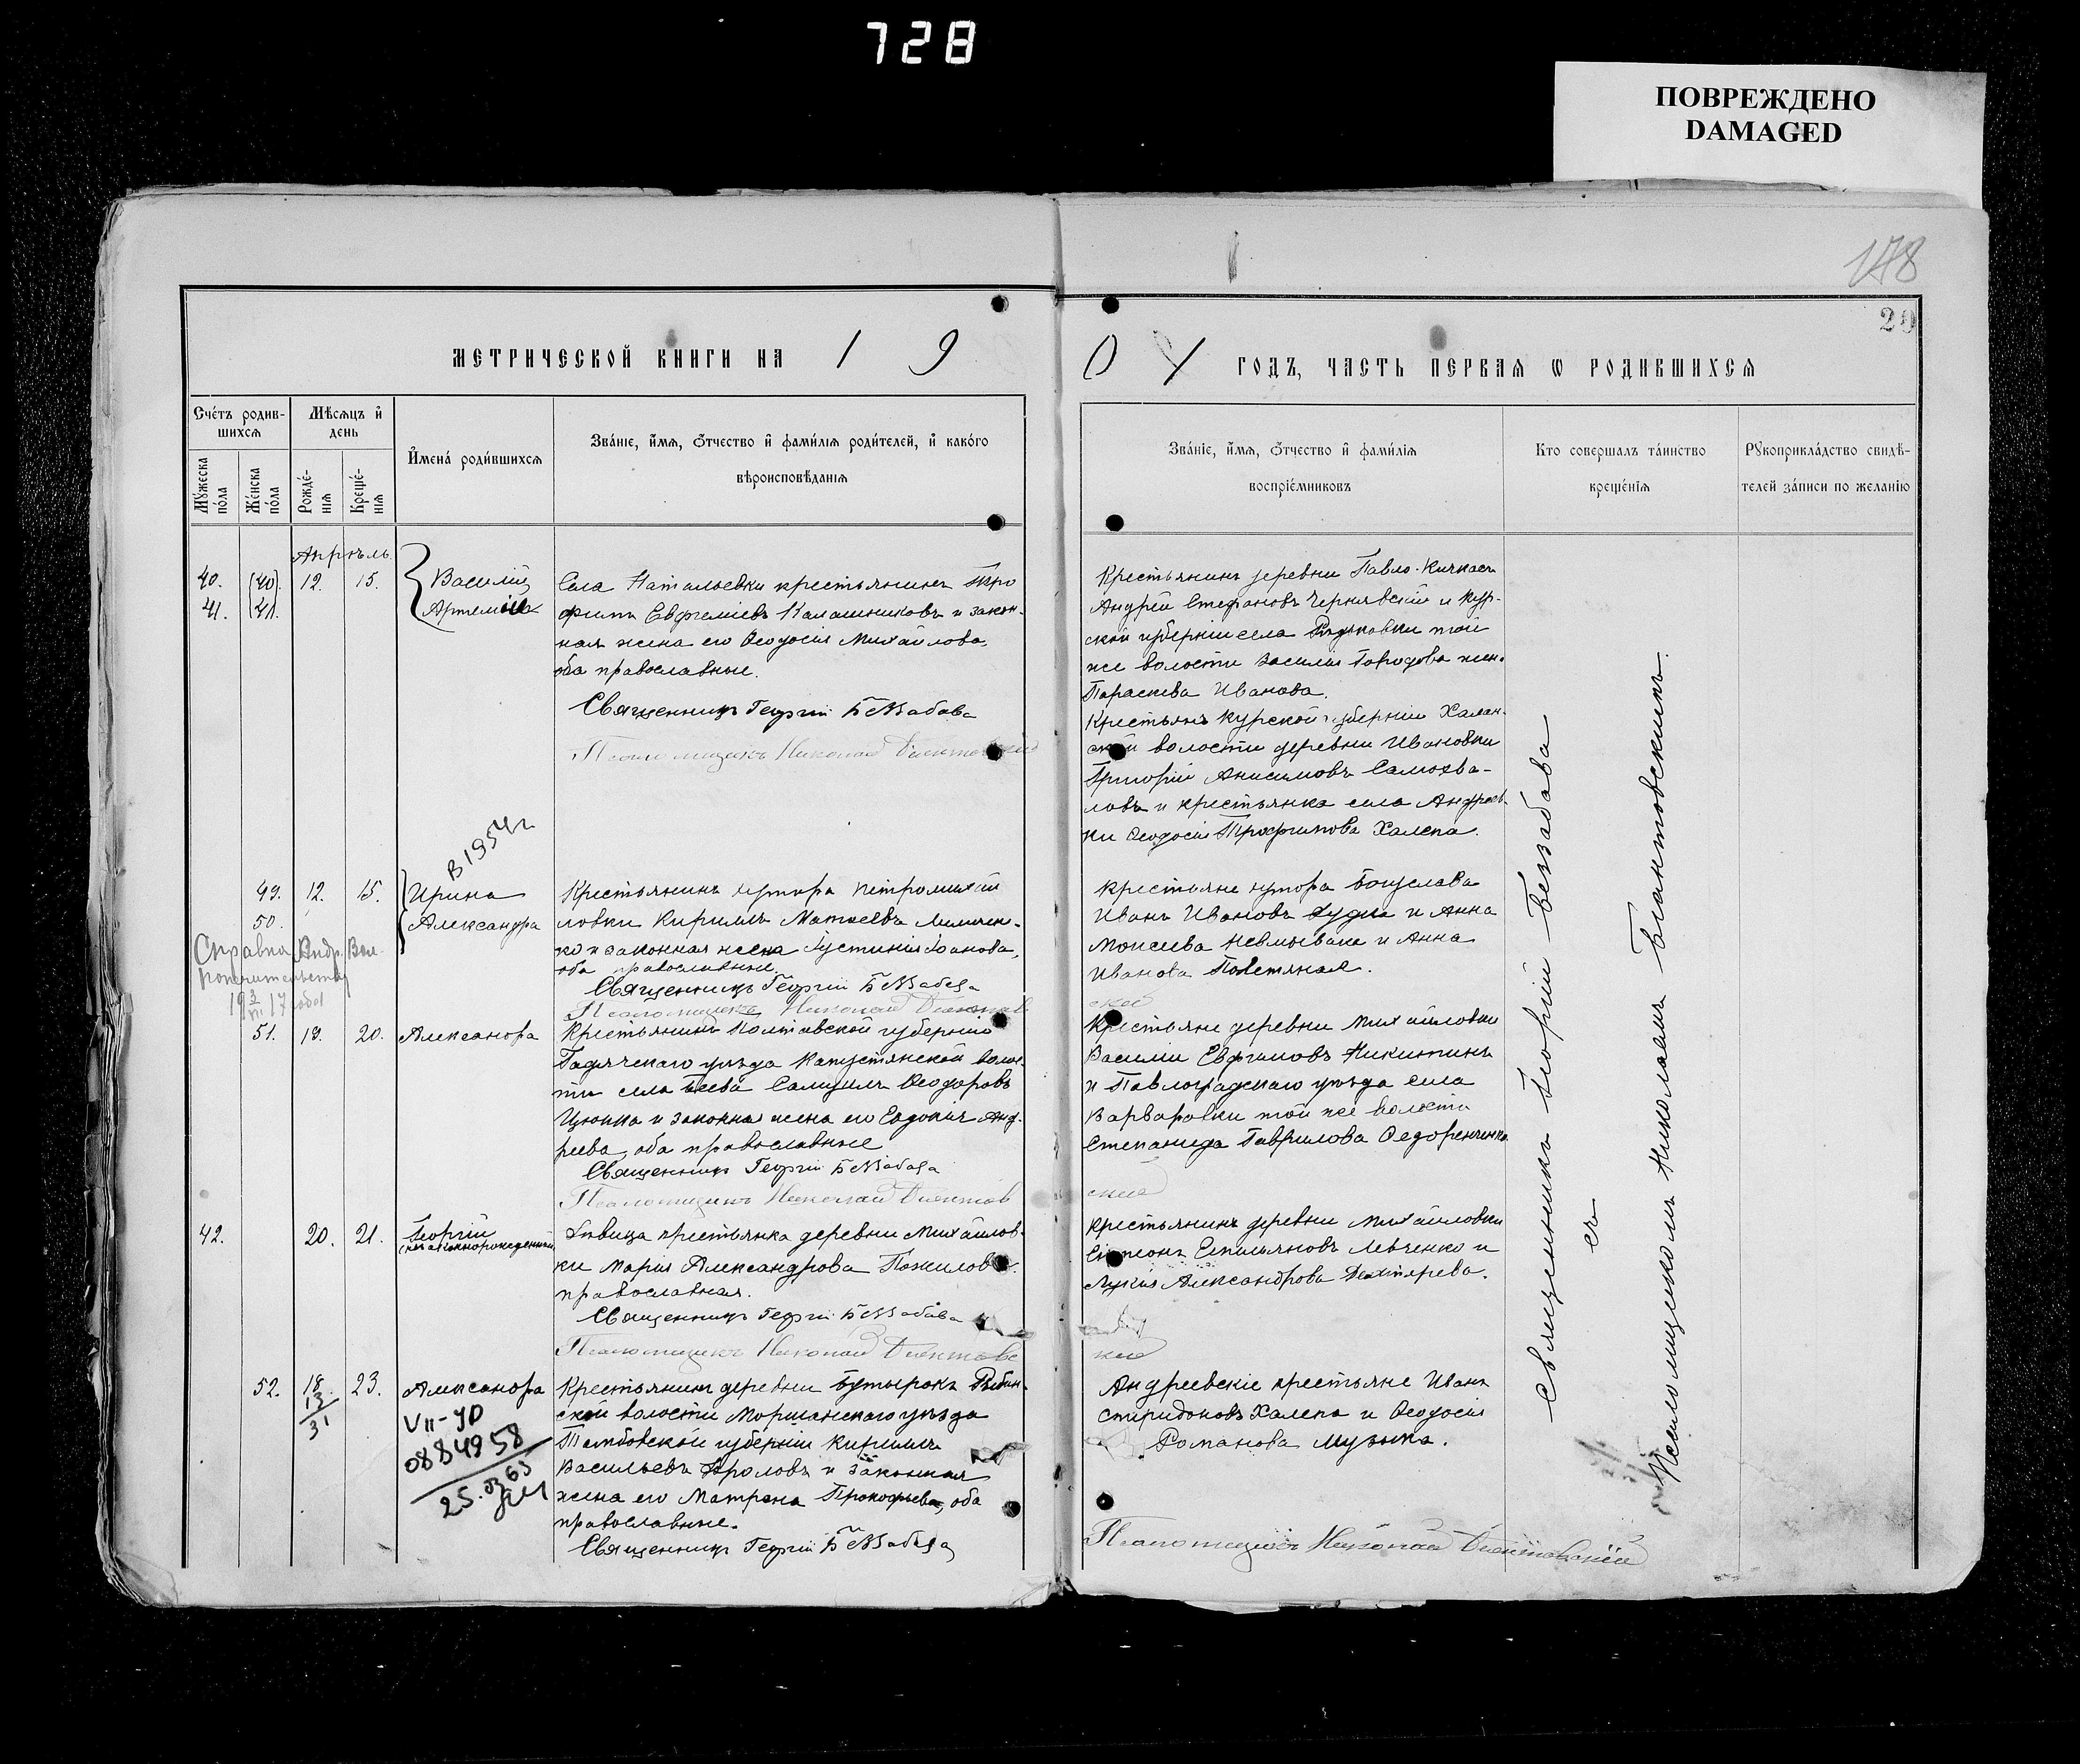 728
ПОВРЕЖДЕНО
DAMAGED
178
20
МЕТРИЧЕСКОЙ КНИГИ НА 1904 ГОДЪ, ЧАСТЬ ПЕРВАЯ Ѡ РОДИВШИХСЯ
Счетъ родив-
шихся
Мѣсяцъ и
день
Мужеска
пола
Женска
пола
Рожде-
нія
Креще-
нія
Имена родившихся
Званіе, имя, отчество и фамилія родителей, и какого
вѣроисповѣданія
Званіе, имя, отчество и фамилія
воспріемниковъ
Кто совершалъ таинство
крещенія
Рукоприкладство свидѣ-
телей записи по желанію
Апрѣль
40. (40). 12. 15. Василій
41. (41).
Села Натальевки крестьянинъ Тро
фимъ Евфиміевъ Калашниковъ и закон-
ная жена его Ѳеодосія Михайлова,
оба православные.
Священникъ Георгій Беззабава
Псаломщикъ Николай
Крестьянинъ деревни Павло-Кичкасъ
Андрей Стефановъ Чернявскій и Кур-
ской губерніи села той
же волости Василія Городова жен.
Параскева Иванова.
Крестьянъ Курской губерніи Халан-
ской волости деревни Ивановки
Григорій Анисимовъ Самохва-
ловъ и крестьянка села Андреев-
ки Ѳеодосія Трофимова Халепа.
В 1954 г
49. 12. 15. Ирина
50. Александра
Справка
1917 года
Крестьянинъ хутора Петромихай
ловки Кириллъ Матѳеевъ
ко и законная жена Іустинія Іоанова,
оба православные.
Священникъ Георгій Беззабава
Псаломщикъ Николай
Крестьяне хутора Богуслава
Иванъ Ивановъ Дудка и Анна
Моисеева Невмывака и Анна
Иванова
51. 19. 20. Александра
Крестьянинъ Полтавской губерніи
Гадячскаго уѣзда Капустянской волос-
ти села Беева Самуилъ Ѳеодоровъ
Цюпка и законная жена его Евдокія Анд-
реева, оба православные
Священникъ Георгій Беззабава
Псаломщикъ Николай
Крестьяне деревни Михайловки
Василій Евфимовъ Никитинъ
и Павлоградскаго уѣзда села
Варваровки той же волости
Степанида Гаврилова Ѳедоренкова
42. 20. 21. Георгій
(незаконнорожденный)
Дѣвица крестьянка деревни Михайлов-
ки Марія Александрова
православная.
Священникъ Георгій Беззабава
Псаломщикъ Николай
Крестьянинъ деревни Михайловки
Симеонъ Емельяновъ Левченко и
Лукія Александрова Дехтярева.
52. 18. 23. Александра
13
31
VII-УО
0884958
25.03 63
Крестьянинъ деревни Бутырокъ Рыбин-
ской волости Моршанскаго уѣзда
Тамбовской губерніи Кириллъ
Васильевъ Фроловъ и законная
жена его Матрона Прокофьева, оба
православные.
Священникъ Георгій Беззабава
Андреевскіе крестьяне Иванъ
Спиридоновъ Халепа и Ѳеодосія
Романова Музыка.
Псаломщикъ Николай
Священникъ Георгій Беззабава
съ
Псаломщикомъ Николаемъ